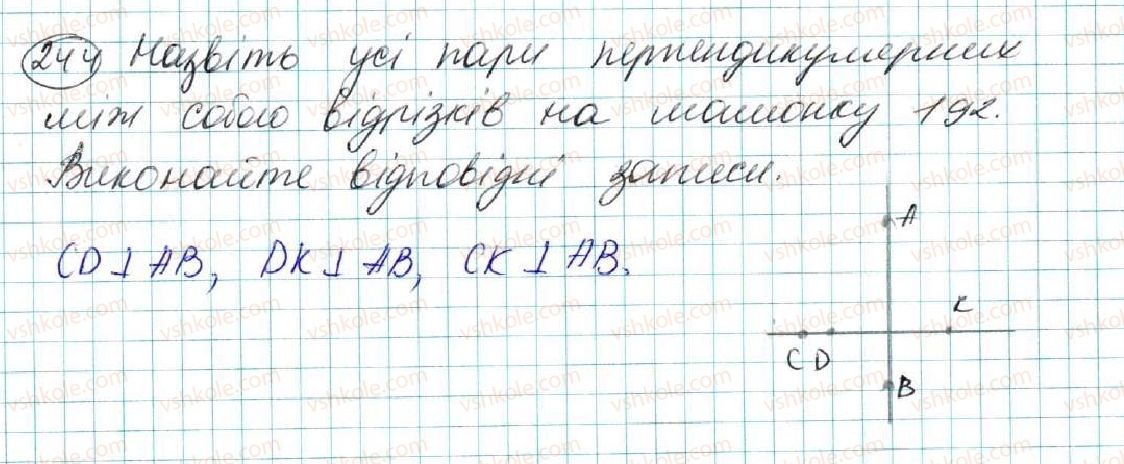 244 Назвіть усі пари перпендикулярних
між собою відрізків на малюнку 192.
Виконайте відповідні записи.
CD ⊥ AB, DK ⊥ AB, CK ⊥ AB.
A
K
C D
B
vshkole.com